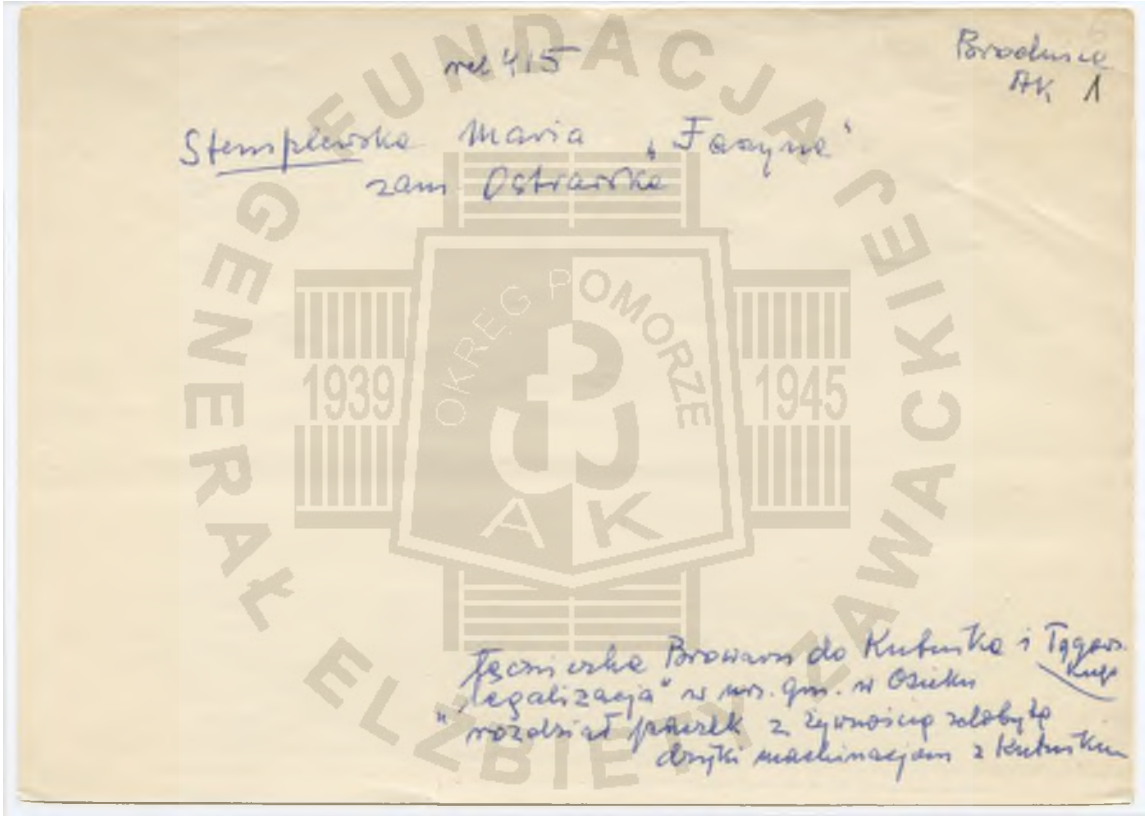 6
rel 415
Brodnica
AK 1
Stemplewska Maria "
zam Ostrowska
FUNDACJA GENERAŁ ELŻBIETY ZAWACKIEJ
OKRĘG POMORZE
1939
1945
AK
Łączniczka Browaru do Kutnika i
"legalizacja" w urz. gm. w Osieku
rozdział paczek z żywnością zdobytą
dzięki machinacjom z Kutnikiem